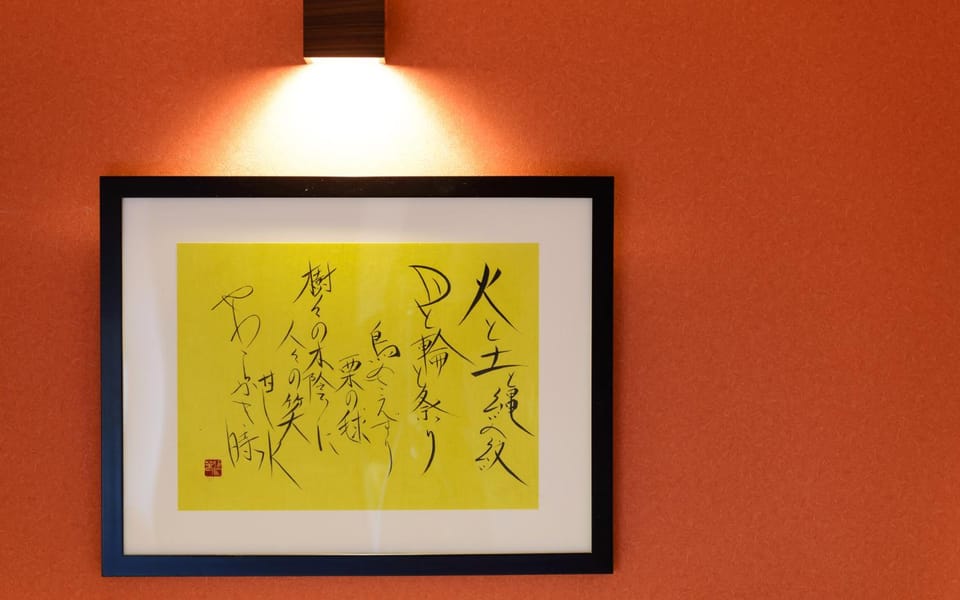 火と土と縄の紋
月と輪と祭り
鳥のさえずり
栗の毬
樹々の木陰に
人々の笑
甘し水
時